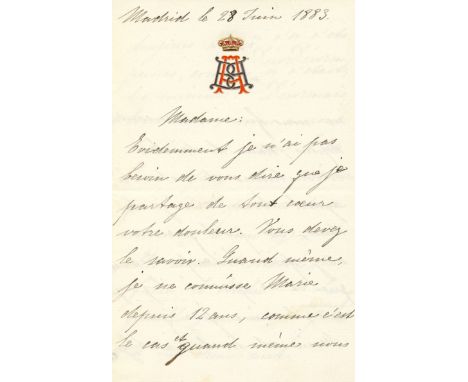 Madrid le 28 Juin 1883.
Madame:
Evidemment je n'ai pas
besoin de vous dire que je
partage de tout cœur
votre douleur. Vous devez
le savoir. Quand même,
je ne connûsse Marie
depuis 12 ans, comme c'est
le cas et quand même nous